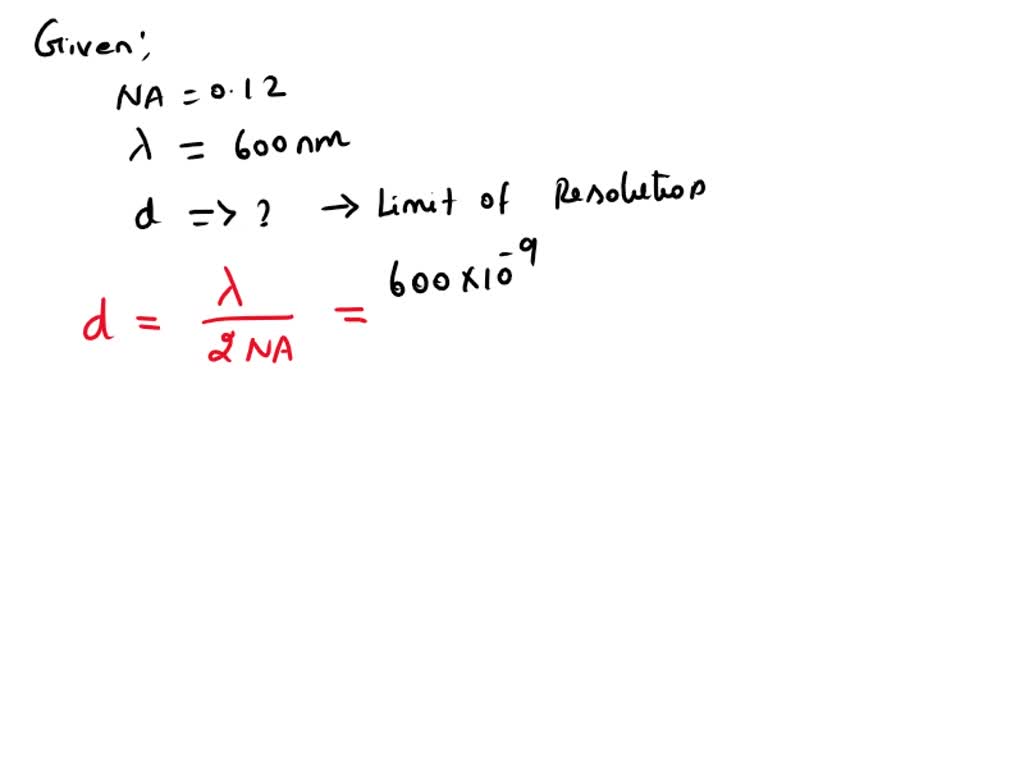 Given:,
NA = 0.12
λ = 600 nm
d => ? → Limit of Resolution
d = λ / 2 NA = 600 × 10⁻⁹